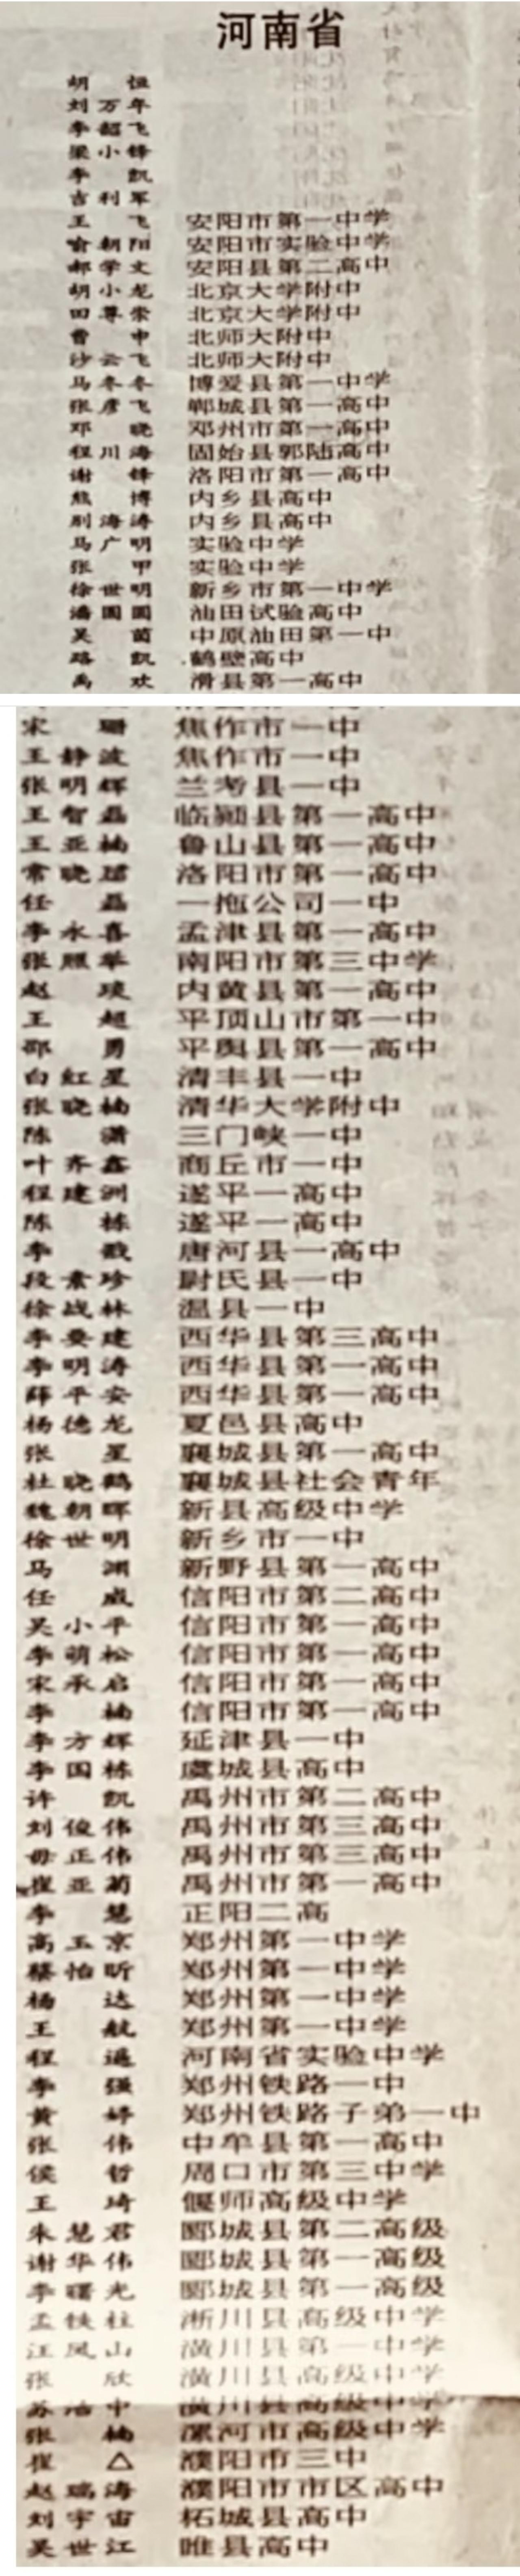 河南省
胡 恒
刘万年
李韶飞
梁小锋
李 凯
吉利军
王 飞 安阳市第一中学
俞朝阳 安阳市实验中学
郝学文 安阳县第二高中
胡小龙 北京大学附中
田尊崇 北京大学附中
曹 申 北师大附中
沙云飞 北师大附中
马冬冬 博爱县第一中学
张彦飞 郸城县第一高中
邓 晓 邓州市第一高中
程川海 固始县郭陆高中
谢 锋 洛阳市第一高中
熊 博 内乡县高中
别海涛 内乡县高中
马广明 实验中学
张 甲 实验中学
徐世明 新乡市第一中学
潘圆圆 油田试验高中
吴 茵 中原油田第一中
路 凯 鹤壁高中
禹 欢 滑县第一高中
宋 珊 焦作市一中
王静波 焦作市一中
张明辉 兰考县一中
王智磊 临颍县第一高中
王亚楠 鲁山县第一高中
常晓 洛阳市第一高中
任 磊 一拖公司一中
李永喜 孟津县第一高中
张照举 南阳市第三中学
赵 琰 内黄县第一高中
王 超 平顶山市第一中
邵 勇 平舆县第一高中
白红星 清丰县一中
张晓楠 清华大学附中
陈 潇 三门峡一中
叶齐鑫 商丘市一中
程建洲 遂平一高中
陈 栋 遂平一高中
李 戬 唐河县一高中
段素珍 尉氏县一中
徐战林 温县一中
李要建 西华县第三高中
李明涛 西华县第一高中
薛平安 西华县第一高中
杨德龙 夏邑县高中
张 星 襄城县第一高中
杜晓鹤 襄城县社会青年
魏朝晖 新县高级中学
徐世明 新乡市一中
马 渊 新野县第一高中
任 威 信阳市第二高中
吴小平 信阳市第一高中
李萌松 信阳市第一高中
宋承启 信阳市第一高中
李 楠 信阳市第一高中
李方辉 延津县一中
李国栋 虞城县高中
许 凯 禹州市第二高中
刘俊伟 禹州市第三高中
毋正伟 禹州市第三高中
崔亚菊 禹州市第一高中
李 慧 正阳二高
高玉京 郑州第一中学
蔡怡昕 郑州第一中学
杨 达 郑州第一中学
王 航 郑州第一中学
程 遥 河南省实验中学
李 强 郑州铁路一中
黄 婷 郑州铁路子弟一中
张 伟 中牟县第一高中
侯 哲 周口市第三中学
王 琦 偃师高级中学
朱慧君 郾城县第二高级
谢华伟 郾城县第一高级
李曙光 郾城县第一高级
孟铁柱 淅川县高级中学
江凤山 潢川县第一中学
张 欣 潢川县高级中学
苏 中 潢川县高级中学
张 楠 漯河市高级中学
崔 △ 濮阳市三中
赵瑞海 濮阳市市区高中
刘宇宙 柘城县高中
吴世江 睢县高中